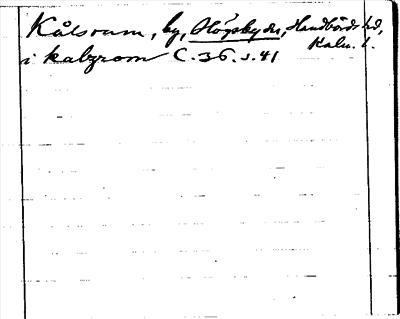 Kålsrum, by, Högsby sn, Handbörds hd,
Kalm. l.
i kalzrom C. 36. s. 41